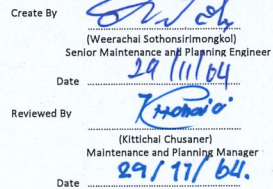 Create By
(Weerachai Sothonsirimongkol)
Senior Maintenance and Planning Engineer
Date 29/11/64
Reviewed By
(Kittichai Chusaner)
Maintenance and Planning Manager
Date 29/11/64.